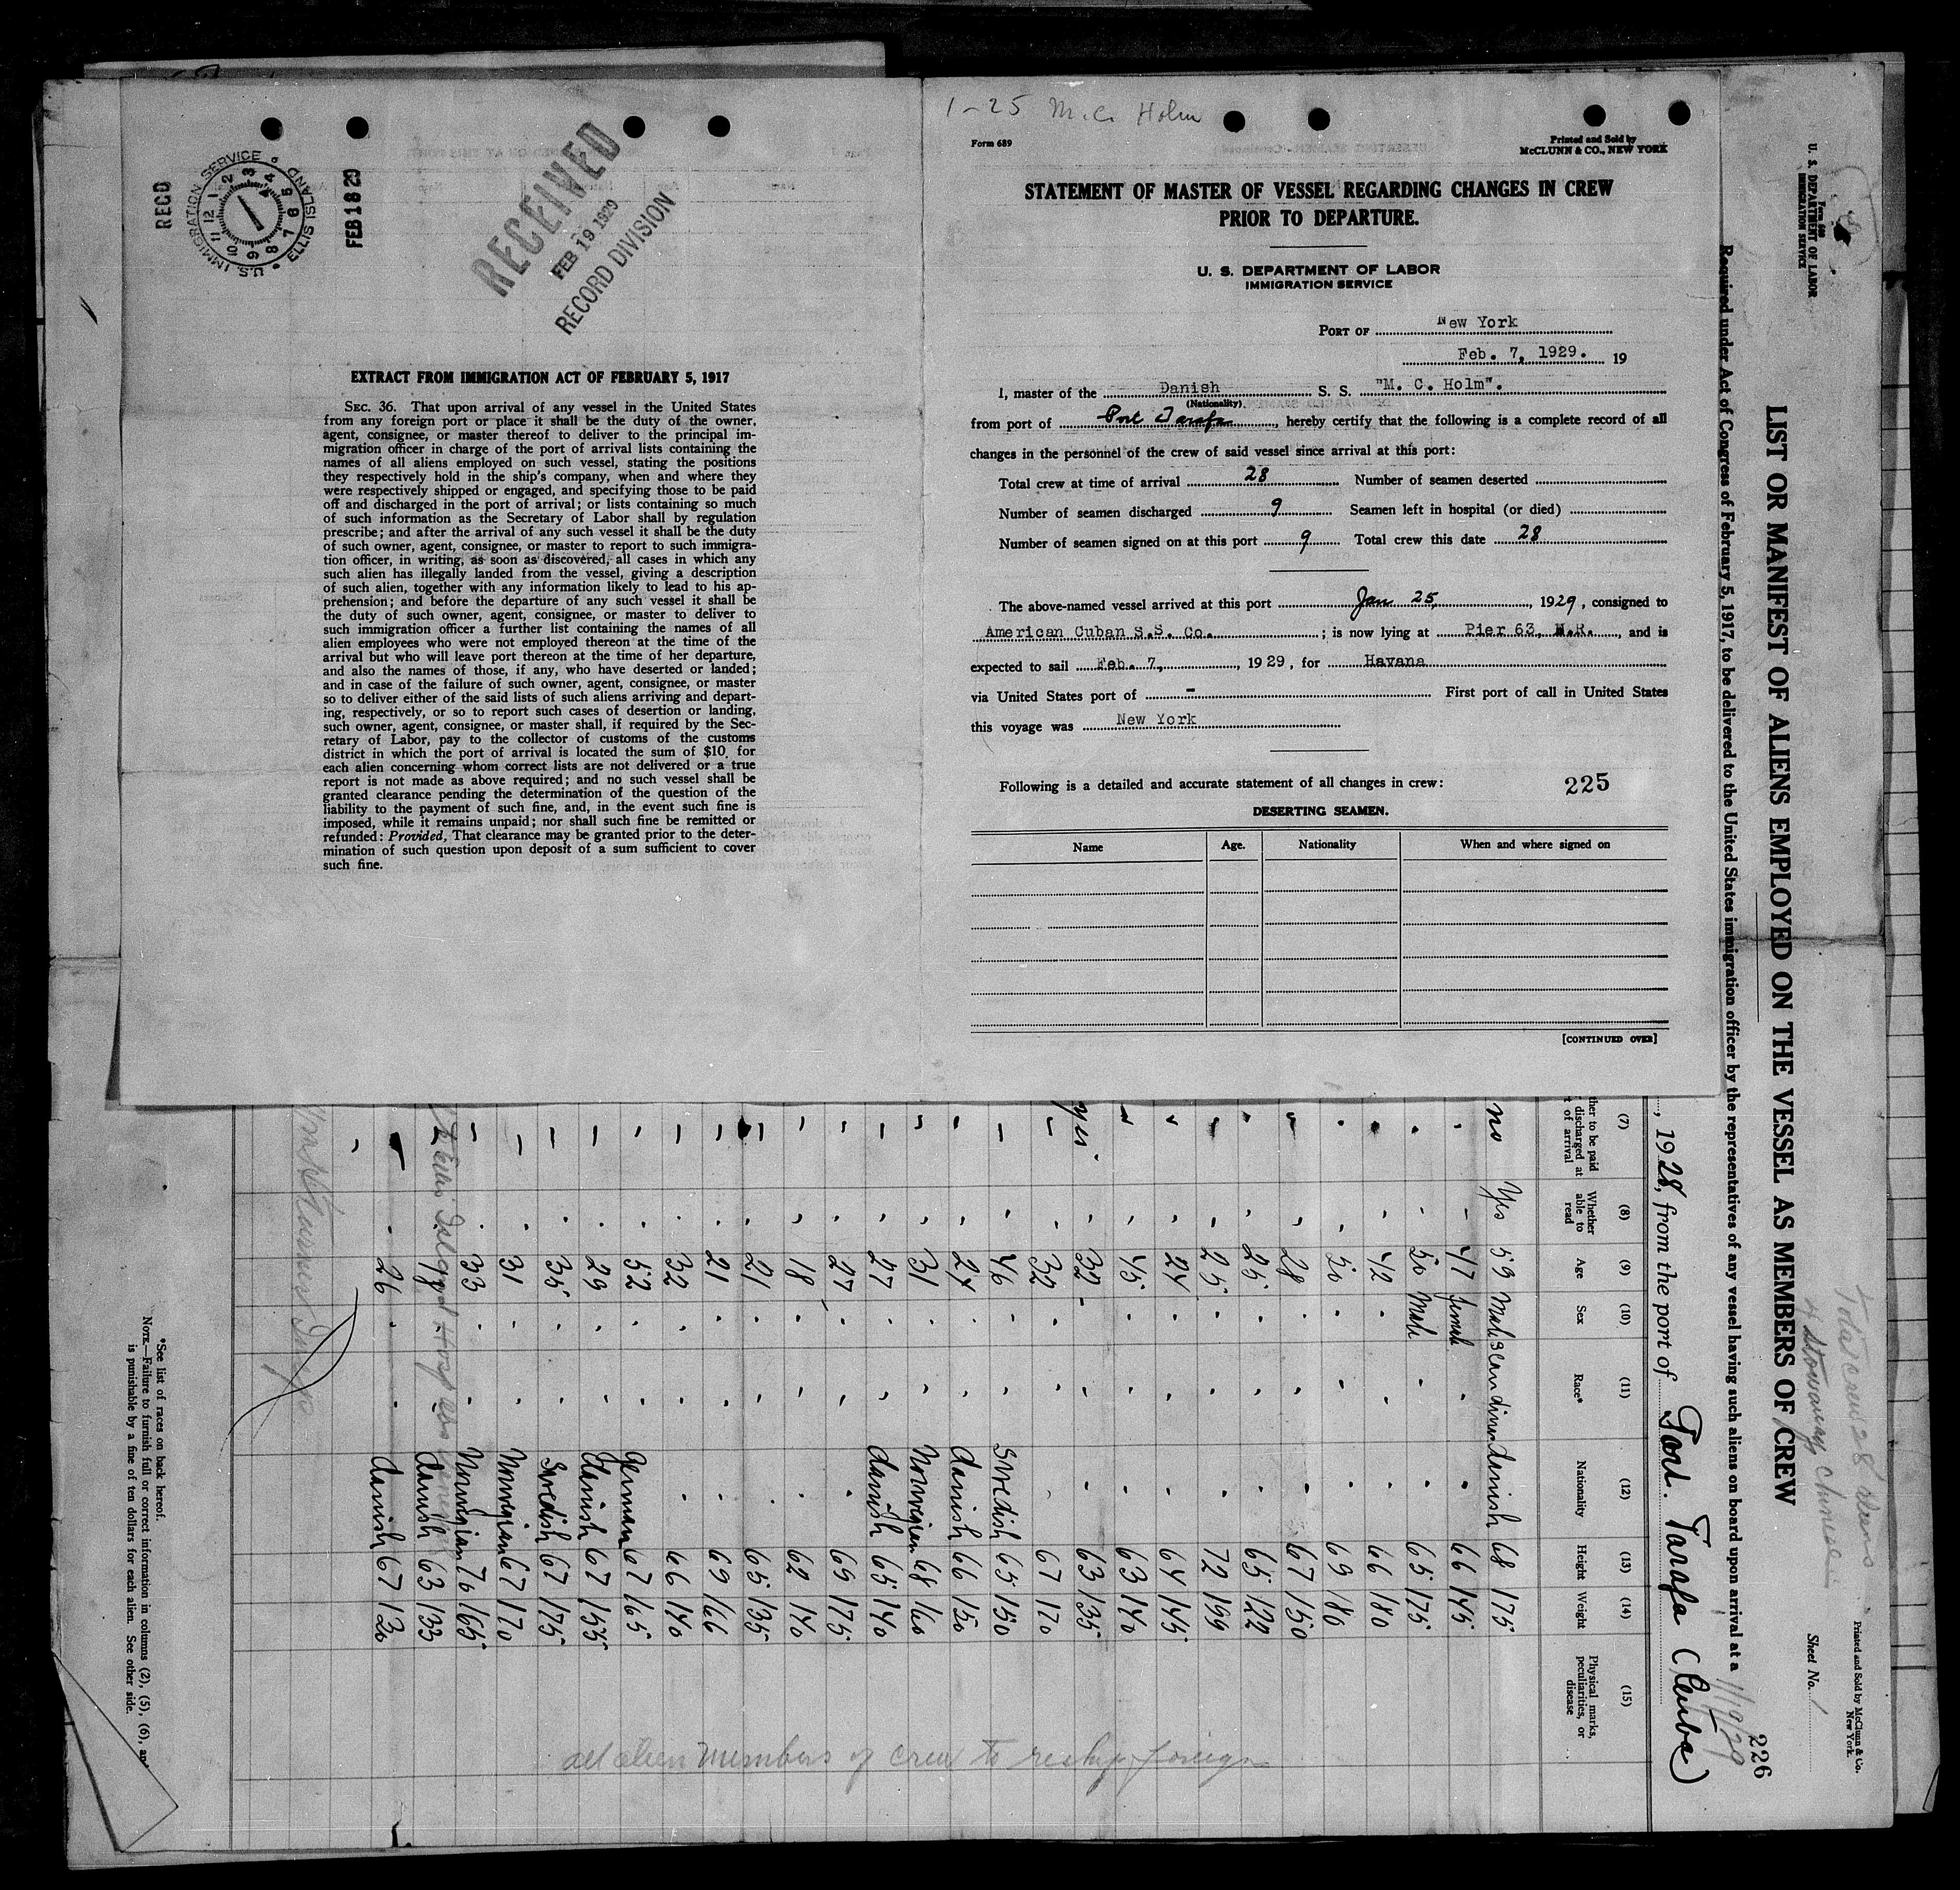 RECD
U.S. IMMIGRATION SERVICE
ELLIS ISLAND
1 2 3 4 5 6 7 8 9 10 11 12
FEB 18 29
RECEIVED
FEB 19 1929
RECORD DIVISION
EXTRACT FROM IMMIGRATION ACT OF FEBRUARY 5, 1917
SEC. 36. That upon arrival of any vessel in the United States
from any foreign port or place it shall be the duty of the owner,
agent, consignee, or master thereof to deliver to the principal im-
migration officer in charge of the port of arrival lists containing the
names of all aliens employed on such vessel, stating the positions
they respectively hold in the ship's company, when and where they
were respectively shipped or engaged, and specifying those to be paid
off and discharged in the port of arrival; or lists containing so much
of such information as the Secretary of Labor shall by regulation
prescribe; and after the arrival of any such vessel it shall be the duty
of such owner, agent, consignee, or master to report to such immigra-
tion officer, in writing, as soon as discovered, all cases in which any
such alien has illegally landed from the vessel, giving a description
of such alien, together with any information likely to lead to his ap-
prehension; and before the departure of any such vessel it shall be
the duty of such owner, agent, consignee, or master to deliver to
such immigration officer a further list containing the names of all
alien employees who were not employed thereon at the time of the
arrival but who will leave port thereon at the time of her departure,
and also the names of those, if any, who have deserted or landed;
and in case of the failure of such owner, agent, consignee, or master
so to deliver either of the said lists of such aliens arriving and depart-
ing, respectively, or so to report such cases of desertion or landing,
such owner, agent, consignee, or master shall, if required by the Sec-
retary of Labor, pay to the collector of customs of the customs
district in which the port of arrival is located the sum of $10 for
each alien concerning whom correct lists are not delivered or a true
report is not made as above required; and no such vessel shall be
granted clearance pending the determination of the question of the
liability to the payment of such fine, and, in the event such fine is
imposed, while it remains unpaid; nor shall such fine be remitted or
refunded: Provided, That clearance may be granted prior to the deter-
mination of such question upon deposit of a sum sufficient to cover
such fine.
1-25 M.C. Holm
Form 689
Printed and Sold by
McCLUNN & CO., NEW YORK
STATEMENT OF MASTER OF VESSEL REGARDING CHANGES IN CREW
PRIOR TO DEPARTURE.
U. S. DEPARTMENT OF LABOR
IMMIGRATION SERVICE
PORT OF New York
Feb. 7, 1929. 19
I, master of the Danish S. S. "M. C. Holm".
(Nationality)
from port of Port Tarafa, hereby certify that the following is a complete record of all
changes in the personnel of the crew of said vessel since arrival at this port:
Total crew at time of arrival 28 Number of seamen deserted
Number of seamen discharged 9 Seamen left in hospital (or died)
Number of seamen signed on at this port 9 Total crew this date 28
The above-named vessel arrived at this port Jan 25, 1929, consigned to
American Cuban S.S. Co. ; is now lying at Pier 63, N.R., and is
expected to sail Feb. 7, 1929, for Havana
via United States port of - First port of call in United States
this voyage was New York
Following is a detailed and accurate statement of all changes in crew: 225
DESERTING SEAMEN.
Name Age. Nationality When and where signed on
[CONTINUED OVER]
Form 680
U. S. DEPARTMENT OF LABOR
IMMIGRATION SERVICE
Total crew 28 aliens
4 Stowaways Chinese
Printed and Sold by McClunn & Co.
New York.
Sheet No. 1
LIST OR MANIFEST OF ALIENS EMPLOYED ON THE VESSEL AS MEMBERS OF CREW
226
Required under Act of Congress of February 5, 1917, to be delivered to the United States immigration officer by the representatives of any vessel having such aliens on board upon arrival at a
1/19/29
, 1928, from the port of Port. Tarafa (Cuba)
(7) (8) (9) (10) (11) (12) (13) (14) (15)
ther to be paid discharged at t of arrival
Whether able to read
Age
Sex
Race*
Nationality
Height
Weight
Physical marks, peculiarities, or disease
no Yes 59 Male Scandinav danish 68 175
" " 47 female " " 66 145
" " 50 Male " " 65 175
" " 42 " " " 66 180
" " 50 " " " 69 186
" " 28 " " " 67 150
" " 25 " " " 65 122
" " 25 " " " 72 199
" " 24 " " " 64 145
" " 45 " " " 63 140
yes " 32 " " " 63 135
" " 32 " " " 67 170
" " 46 " " Swedish 65 150
" " 24 " " danish 66 150
" " 31 " " Norwegian 68 160
" " 27 " " danish 65 140
" " 27 " " " 69 175
" " 18 " " " 62 140
" " 21 " " " 65 135
" " 21 " " " 69 166
" " 32 " " " 66 140
" " 52 " " German 67 165
" " 29 " " danish 67 155
" " 35 " " Swedish 67 175
" " 31 " " Norwegian 67 170
" " 33 " " Norwegian 70 165
" " 18 " " danish 63 133
" " 26 " " danish 67 120
all alien members of crew to reship foreign
*See list of races on back hereof.
NOTE.—Failure to furnish full or correct information in columns (2), (5), (6), an
is punishable by a fine of ten dollars for each alien. See other side.